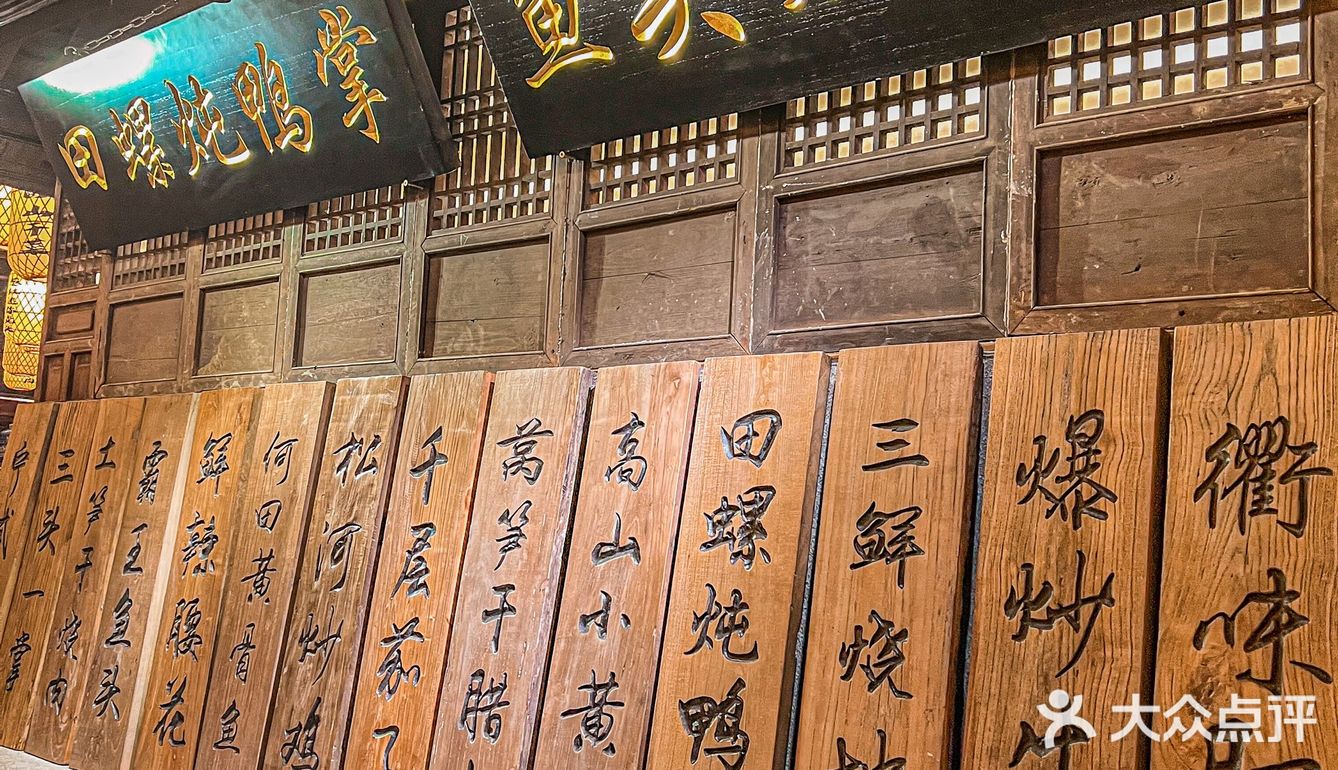 田螺炖鸭掌
鱼头
户贰
三头一掌
土笋干烧肉
霸王鱼头
鲜辣腰花
何田黄骨鱼
松河炒鸡
千层茄
莴笋干腊
高山小黄
田螺炖鸭
三鲜烧
爆炒牛
衢味
大众点评